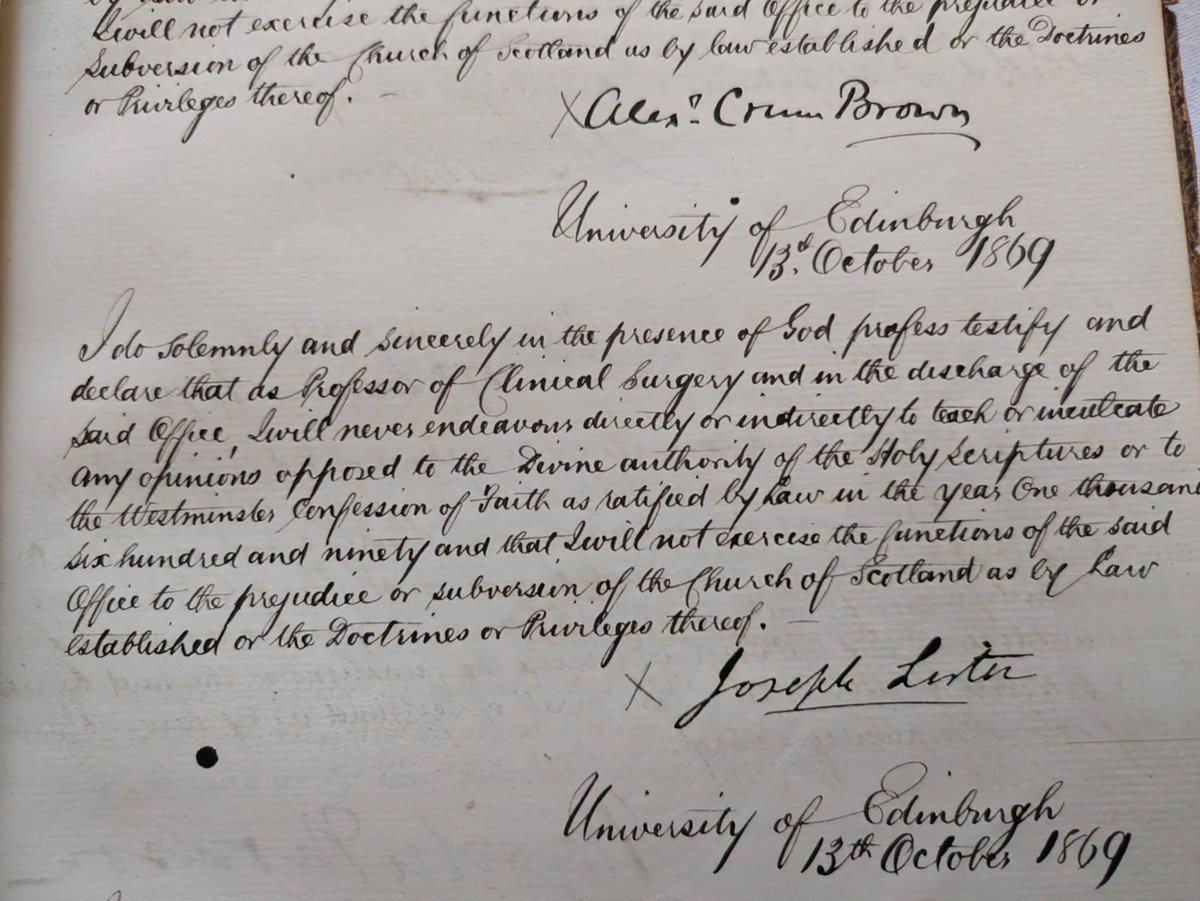 I will not exercise the functions of the said Office to the prejudice or
subversion of the Church of Scotland as by law established or the Doctrines
or Privileges thereof. —
X Alexr. Crum Brown
University of Edinburgh
13.d October 1869
I do solemnly and sincerely in the presence of God profess testify and
declare that as Professor of Clinical Surgery and in the discharge of the
said Office, I will never endeavour directly or indirectly to teach or inculcate
any opinions opposed to the Divine authority of the Holy Scriptures or to
the Westminster Confession of Faith as ratified by Law in the year One thousand
six hundred and ninety and that I will not exercise the functions of the said
Office to the prejudice or subversion of the Church of Scotland as by Law
established or the Doctrines or Privileges thereof. —
X Joseph Lister
University of Edinburgh
13th October 1869